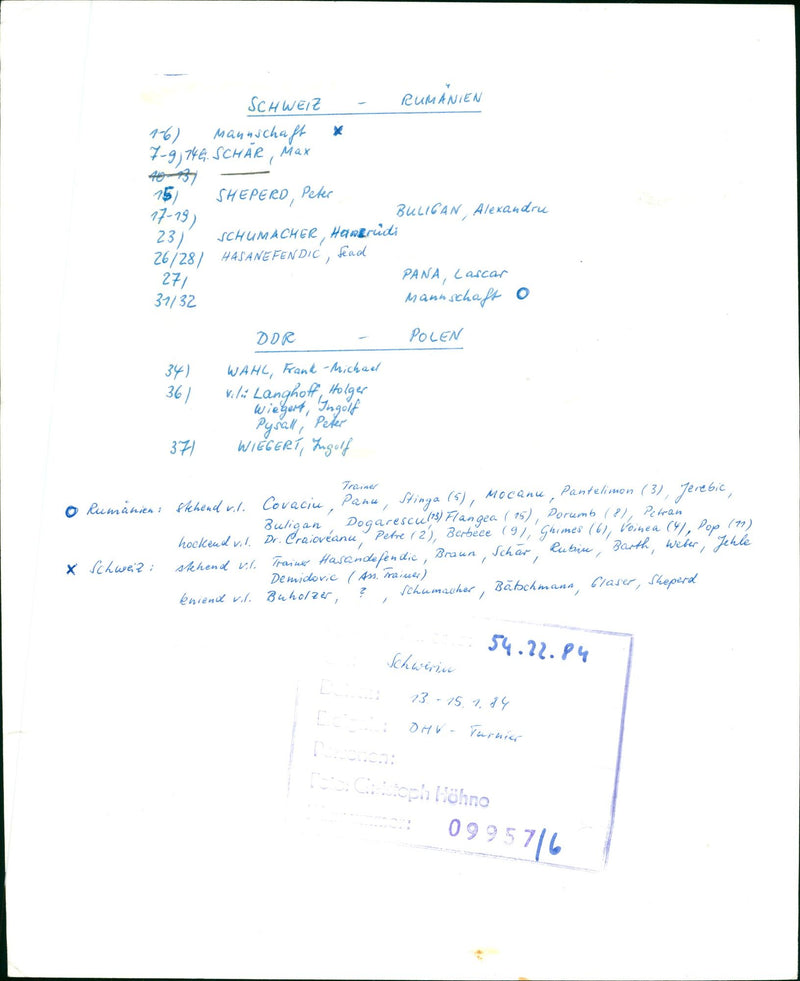 SCHWEIZ - RUMÄNIEN
1-6) Mannschaft x
7-9, 14 SCHÄR, Max
10-13)
15) SHEPERD, Peter
17-19) BULIGAN, Alexandru
23) SCHUMACHER, Hansrüdi
26/28) HASANEFENDIC, Sead
27) PANA, Lascar
31/32 Mannschaft O
DDR - POLEN
34) WAHL, Frank-Michael
36) v.l.: Langhoff, Holger
Wiegert, Ingolf
Pysall, Peter
37) WIEGERT, Ingolf
Trainer
O Rumänien: stehend v.l. Covaciu, Pana, Stinga (5), Mocanu, Pantelimon (3), Jerebic,
Buligan, Dogarescu (13) Flangea (15), Dorumb (8), Petran
hockend v.l. Dr. Craioveanu, Petre (2), Berbece (9), Ghimes (6), Voinea (4), Pop (11)
x Schweiz: stehend v.l. Trainer Hasandefendic, Braun, Schär, Rubin, Barth, Weber, Jehle
Demidovic (Ass. Trainer)
kniend v.l. Buholzer, ?, Schumacher, Bätschmann, Glaser, Sheperd
54.22.84
Schwerin
Datum: 13.-15.1.84
Ereign.: DHV-Turnier
Personen:
Foto: Christoph Höhne
09957/6